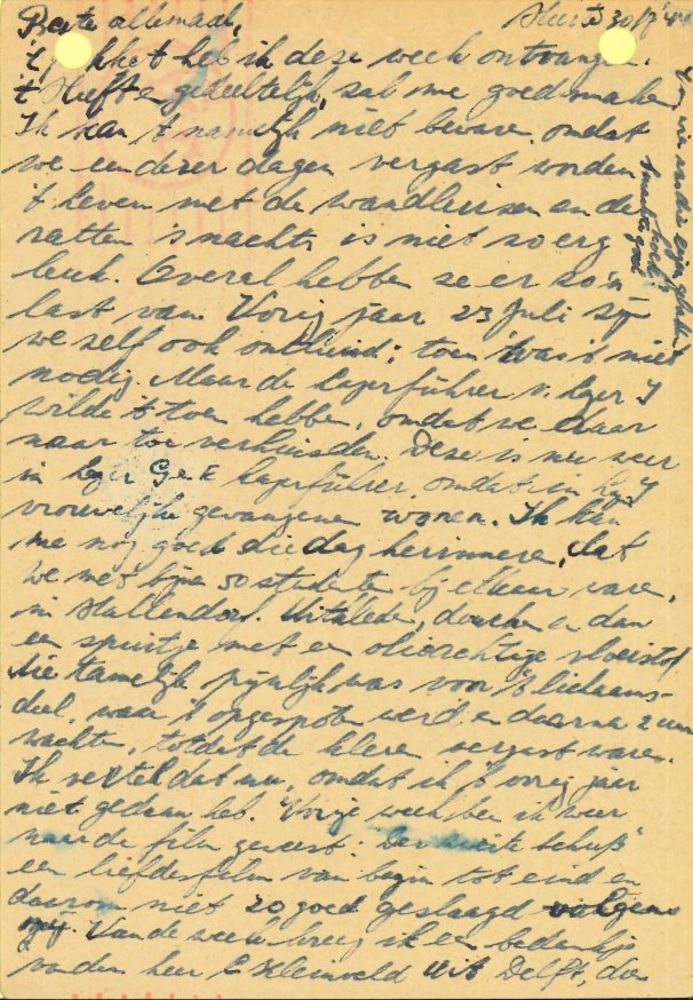 Beste allemaal, 30/7 '44
't pakket heb ik deze week ontvangen.
't gedeeltelijk, zal me goed smaken
Ik kan 't namelijk niet beware, omdat
we eendezer dagen vergast worden
't leven met de wandluizen en de
ratten 's nachts is niet zo erg
leuk. Overal hebben ze er zo'n
last van. Vorig jaar 23 Juli zijn
we zelf ook ontluisd; toen was 't niet
nodig. Maar de Lagerführer v. lager
wilde 't toen hebben, omdat we daar
naar toe verhuisden. Deze is nu weer
in lager Lagerführer, omdat in lager
vrouwelijke gevangenen wonen. Ik kan
me nog goed die dag herinneren, dat
we met bijna 50 studenten bij elkaar waren,
in Hallendorf. Uitkleden, douchen en dan
een spuitje met een olieachtige vloeistof
die tamelijk pijnlijk was voor 't lichaams-
deel, waar 't opgespoten werd en daarna 2 uur
wachten, totdat de kleren vergast waren.
Ik vertel dat nu, omdat ik 't vorig jaar
niet gedaan heb. Vorige week ben ik weer
naar de film geweest: "Der zweite Schuß"
een liefdesfilm van begin tot eind en
daarom niet zo goed geslaagd volgens
mij. Van de week kreeg ik een bedankje
van den heer C Kleinveld uit Delft, die